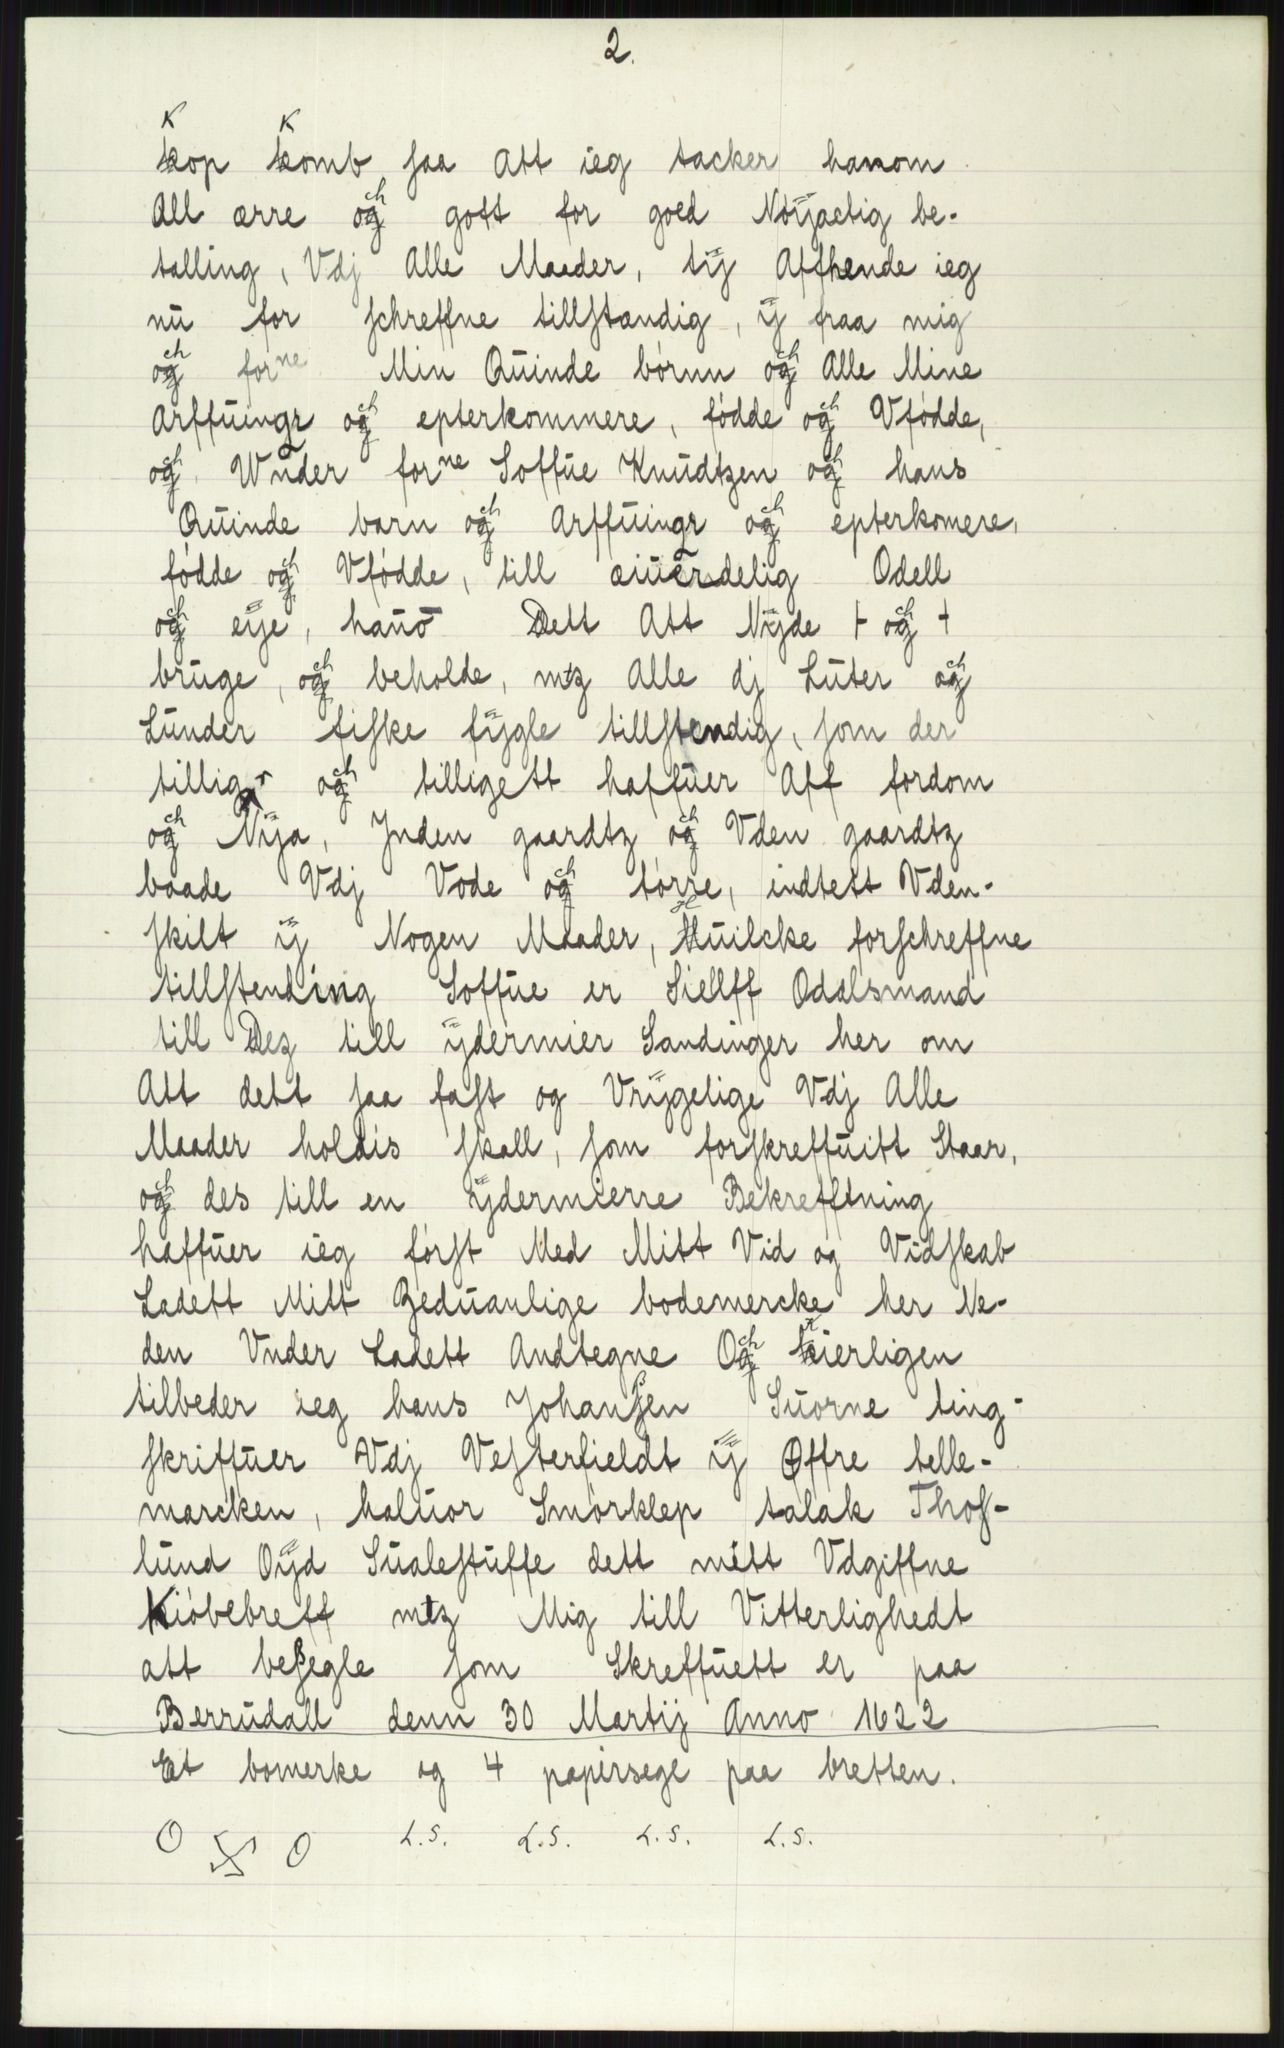 2.
Kop Komb saa Att ieg tacker hanom
All ærre och gott for goed Nöÿactig be-
talling, Vdj Alle Maader, tÿ Affhende ieg
nu for schreffne tillstændig, ÿ fraa mig
och forne Min Quinde börnn och Alle Mine
Arffuingr och epterkommere, födde och Vfödde,
och Wnder forne Soffue Knudtzen och hans
Quinde barn och Arffuingr och epterkomere,
födde och Vfödde, till æiuerdelig Odell
och eÿe, hanō Dett Att Nÿde ꝉ och ꝉ
bruge, och beholde, mtz Alle dj Luter och
Lunder fiske fÿgle tillstendig, som der
tilligr och tilligett haffuer Aff fordom
och Nÿa, Jnden gaardtz och Vden gaardtz
baade Vdj Vode och törre, indtett Vden-
skilt ÿ Nogen Maader, Huilcke forschreffne
tillstending Soffue er Siellff Odalsmand
till Dez till ÿdermier Sandinger her om
Att dett saa fast og Vrÿgelige Vdj Alle
Maader holdis skall, som forskreffuitt Staar,
och des till en ÿdermierre Bekrefftning
haffuer ieg först Med Mitt Vid og Vidskab
Ladett Mitt Zeduanlige bodemercke her Ne-
den Vnder Ladett Andtegne Och kierligen
tilbeder ieg hans Johanssen Suorne ting-
skriffuer Vdj Vesterfieldt ÿ Øffre telle-
marcken, haluor Smörklep talak Thof-
lund Oÿd Sualestuffe dett mitt Vdgiffne
Kiöbebreff mtz Mig till Vitterlighedt
att besegle som Skreffuett er paa
Berrudall denn 30 Martij Anno 1622
Et bomerke og 4 papirsegl paa bretten.
L.S. L.S. L.S. L.S.